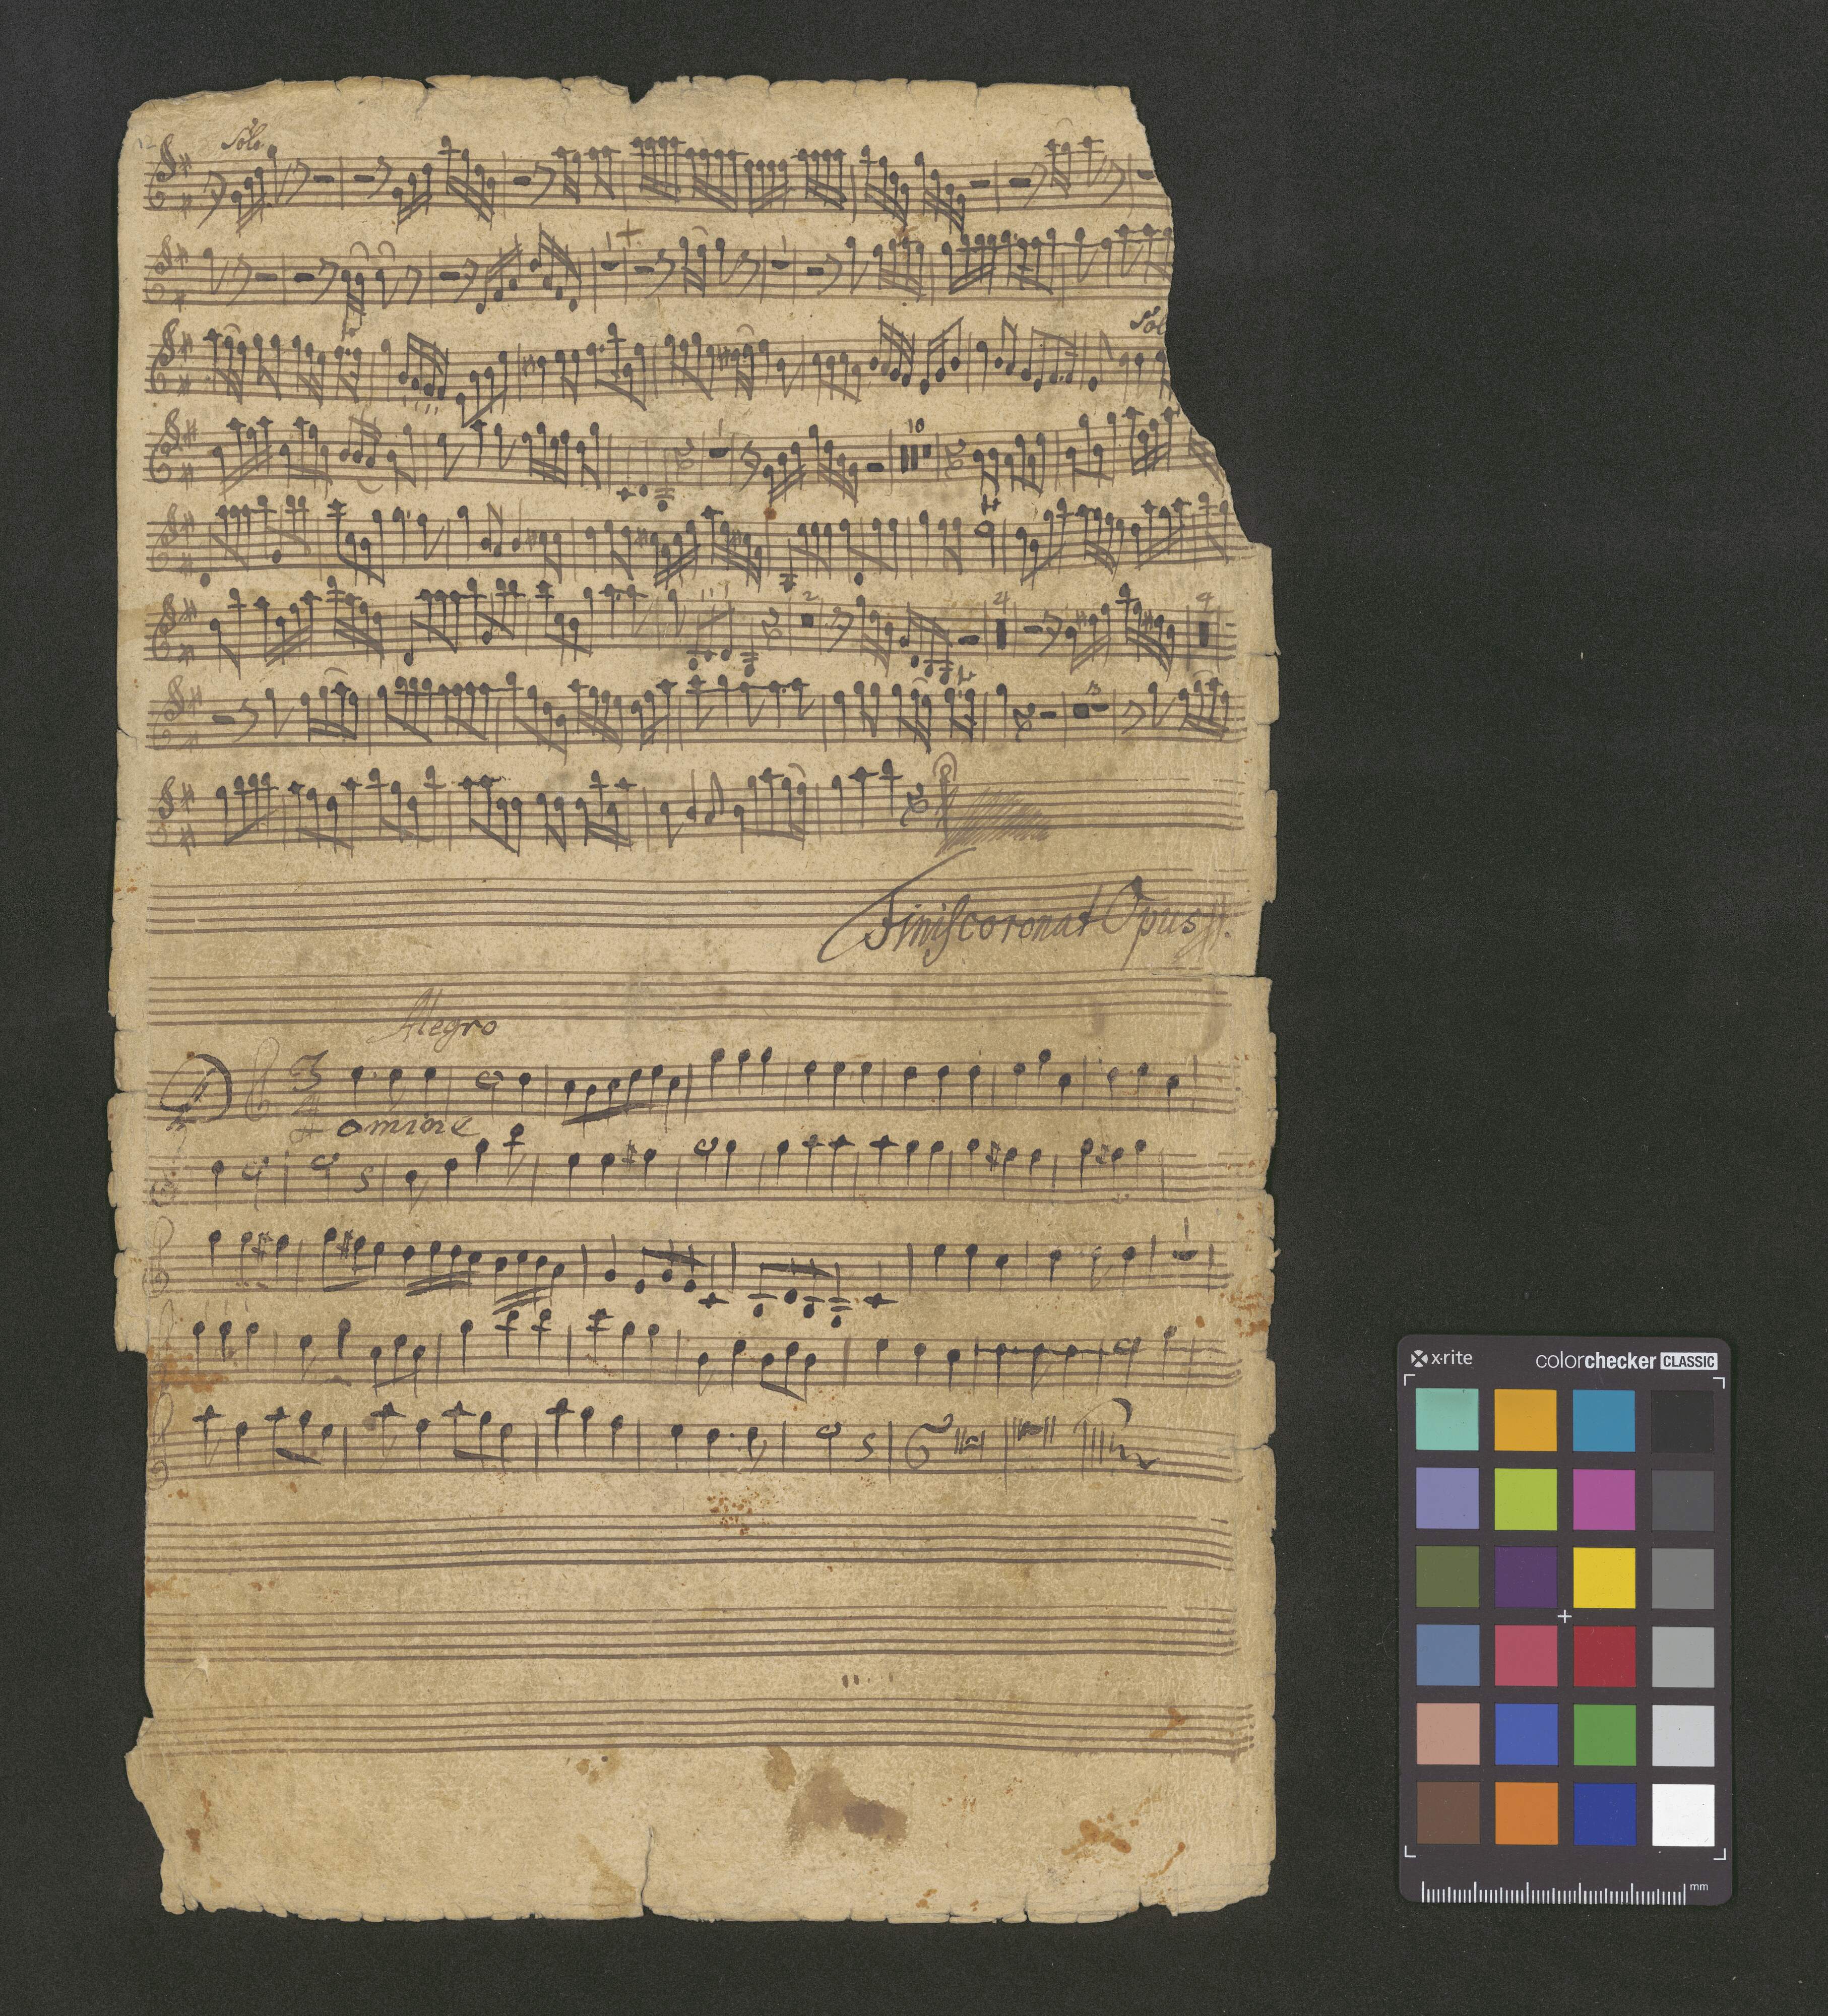 Solo
1 1
Sol
1 10
2 4 4
3
Finis coronat Opus
Alegro
3
4
Domine
1
x·rite colorchecker CLASSIC
mm